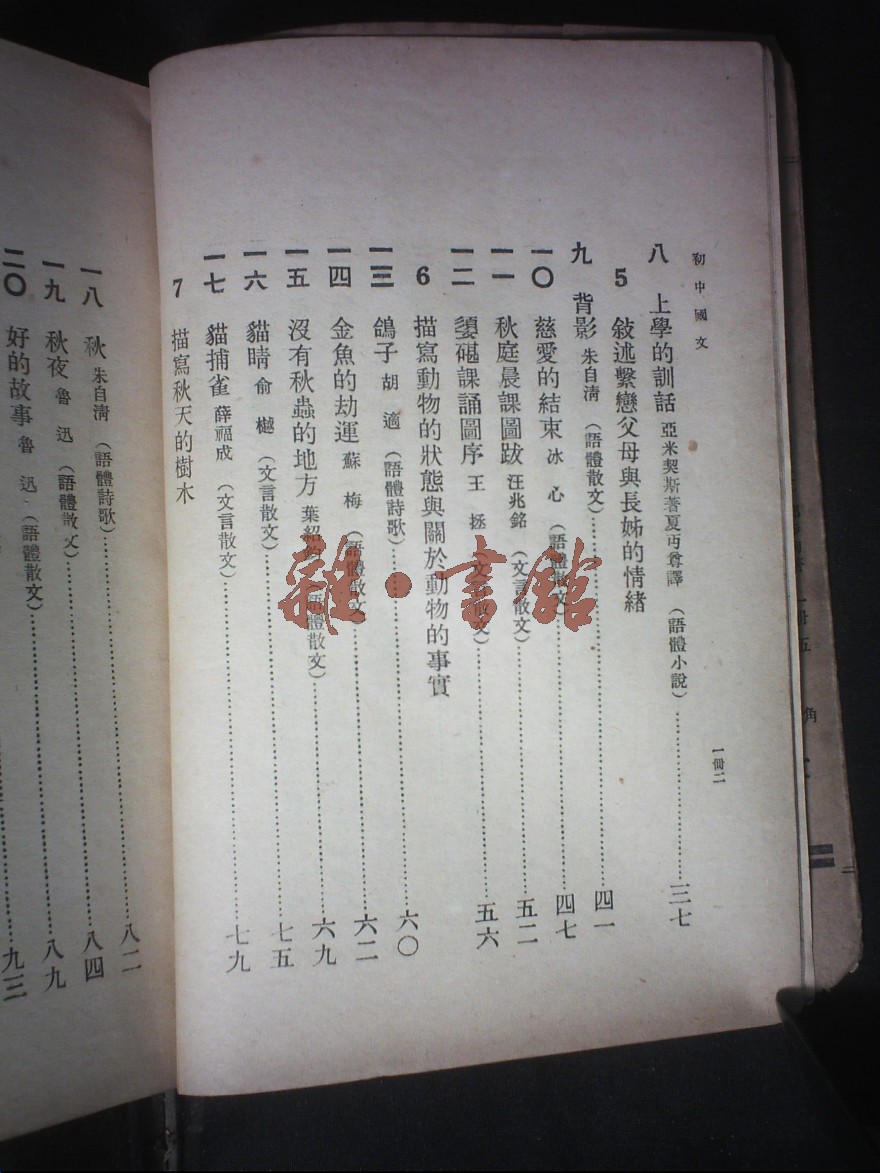 初中國文
一冊二
八 上學的訓話 亞米契斯著夏丏尊譯 (語體小說)……三七
5 敍述繫戀父母與長姊的情緒
九 背影 朱自清 (語體散文)……四一
一〇 慈愛的結束 冰心 (語體散文)……四七
一一 秋庭晨課圖跋 汪兆銘 (文言散文)……五二
一二 媭碪課誦圖序 王拯 (文言散文)……五六
6 描寫動物的狀態與關於動物的事實
一三 鴿子 胡適 (語體詩歌)……六〇
一四 金魚的劫運 蘇梅 (語體散文)……六二
一五 沒有秋蟲的地方 葉紹鈞 (語體散文)……六九
一六 貓睛 俞樾 (文言散文)……七五
一七 貓捕雀 薛福成 (文言散文)……七九
7 描寫秋天的樹木
一八 秋 朱自清 (語體詩歌)……八二
一九 秋夜 魯迅 (語體散文)……八四
二〇 好的故事 魯迅 (語體散文)……八九
九三
雜·書館
一冊五
角